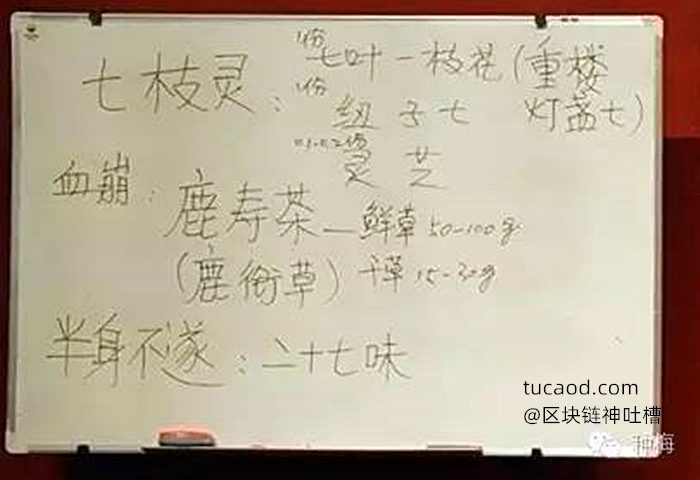 七枝灵:
1份 七叶一枝花(重楼
灯盏七)
1份 纽子七
0.1-0.2份 灵芝
血崩:鹿寿茶—鲜草 50-100g
(鹿衔草) 干草 15-30g
半身不遂:二十七味
tucaod.com
@区块链神吐槽
种海